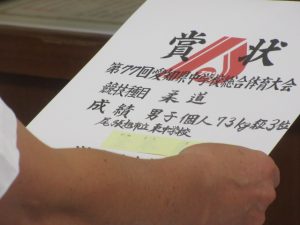 賞状
第77回愛知県中学校総合体育大会
競技種目 柔道
成績 男子個人73kg級3位
尾張旭市立東中学校